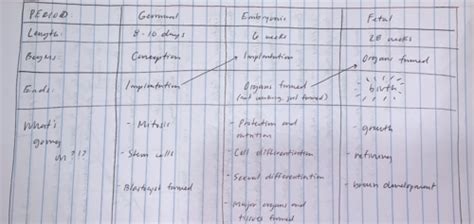 PERIOD: Germinal Embryonic Fetal
Length: 8-10 days 6 weeks 28 weeks
Begins: Conception Implantation Organs formed
Ends: Implantation Organs formed birth
(not working, just formed)
What's going on?!?
- Mitosis
- Stem cells
- Blastocyst formed
- Protection and nutrition
- Cell differentiation
- Sexual differentiation
- Major organs and
tissues formed
- growth
- refining
- brown development